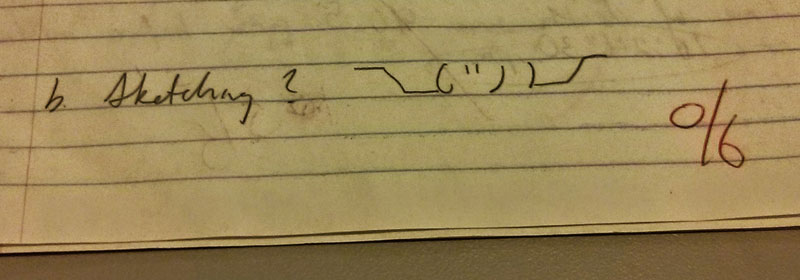 b. Sketching? ¯\_("))_/¯
0/6